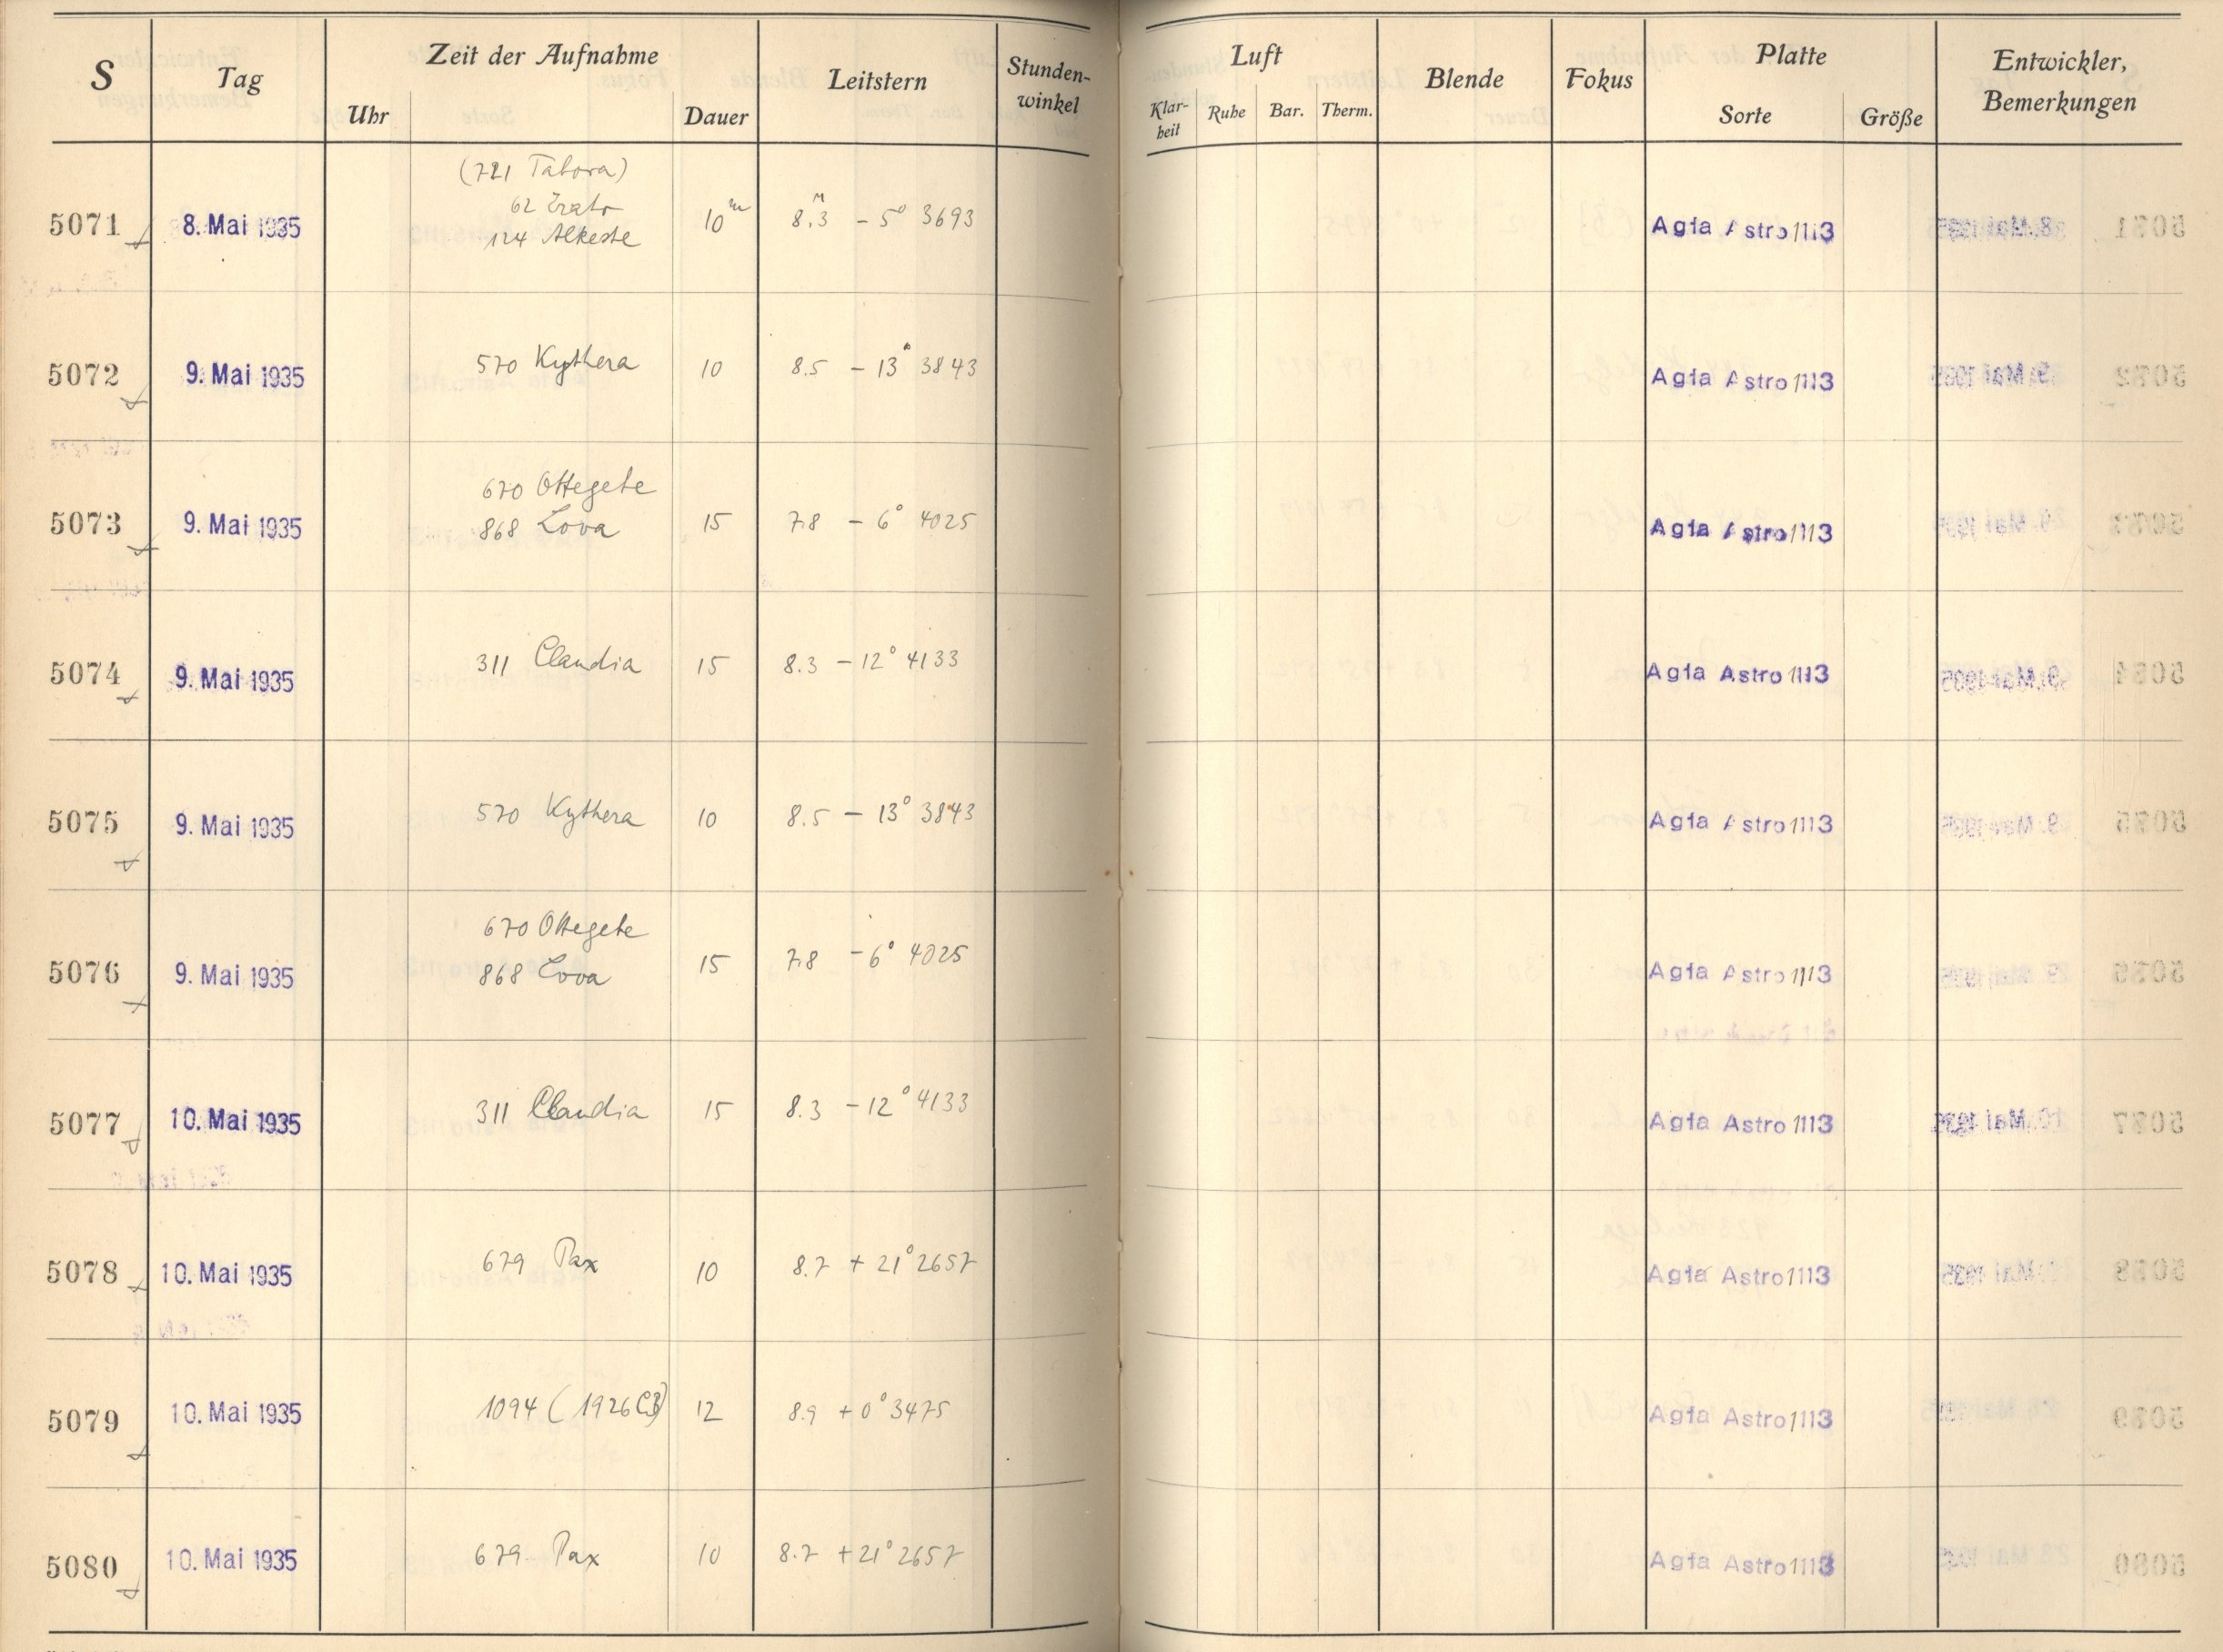 S Tag Zeit der Aufnahme Leitstern Stunden-winkel Luft Blende Fokus Platte Entwickler, Bemerkungen
Uhr Dauer Klar-heit Ruhe Bar. Therm. Sorte Größe
(721 Tabora)
62 Erato
5071 8. Mai 1935 124 Alkeste 10m 8.M3 - 5° 3693 Agfa Astro 1113
5072 9. Mai 1935 570 Kythera 10 8.5 - 13° 3843 Agfa Astro 1113
670 Ottegebe
5073 9. Mai 1935 868 Lova 15 7.8 - 6° 4025 Agfa Astro 1113
5074 9. Mai 1935 311 Claudia 15 8.3 - 12° 4133 Agfa Astro 1113
5075 9. Mai 1935 570 Kythera 10 8.5 - 13° 3843 Agfa Astro 1113
670 Ottegebe
5076 9. Mai 1935 868 Lova 15 7.8 - 6° 4025 Agfa Astro 1113
5077 10. Mai 1935 311 Claudia 15 8.3 - 12° 4133 Agfa Astro 1113
5078 10. Mai 1935 679 Pax 10 8.7 + 21° 2657 Agfa Astro 1113
5079 10. Mai 1935 1094 (1926 CB) 12 8.9 + 0° 3475 Agfa Astro 1113
5080 10. Mai 1935 679 Pax 10 8.7 + 21° 2657 Agfa Astro 1113